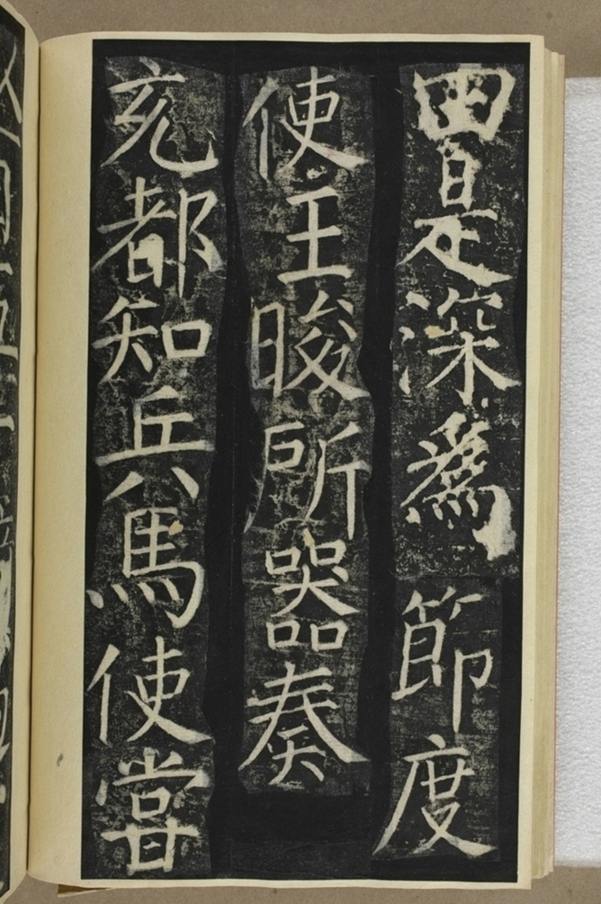 由是深為節度
使王晙所器奏
充都知兵馬使嘗